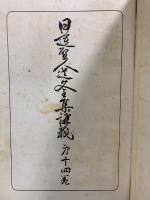 日蓮聖人遺文全集講義
第十四巻